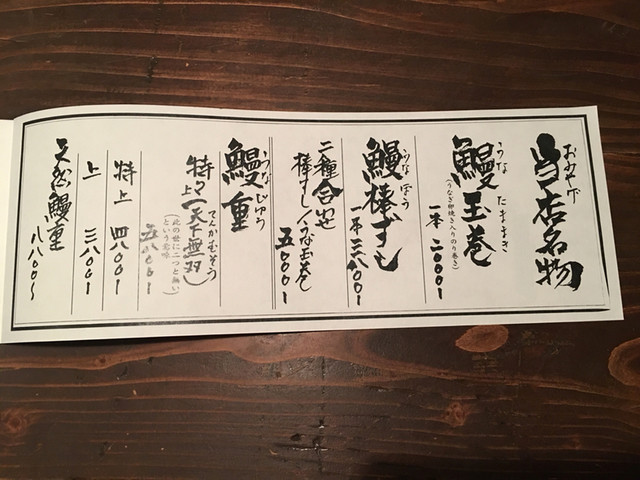 おみやげ
当店名物
うなたままき
鰻玉巻
(うなぎ卵焼き入りのり巻き)
一本 二〇〇〇一
うなぼう
鰻棒ずし
一本 三八〇〇一
二種合せ
棒すし/うな玉巻
五〇〇〇一
うなじゅう
鰻重
てんかむそう
特々上(天下無双)
(此の世に二つと無い
という意味)
五八〇〇一
特上 四八〇〇一
上 三八〇〇一
天然鰻重
八八〇〇〜